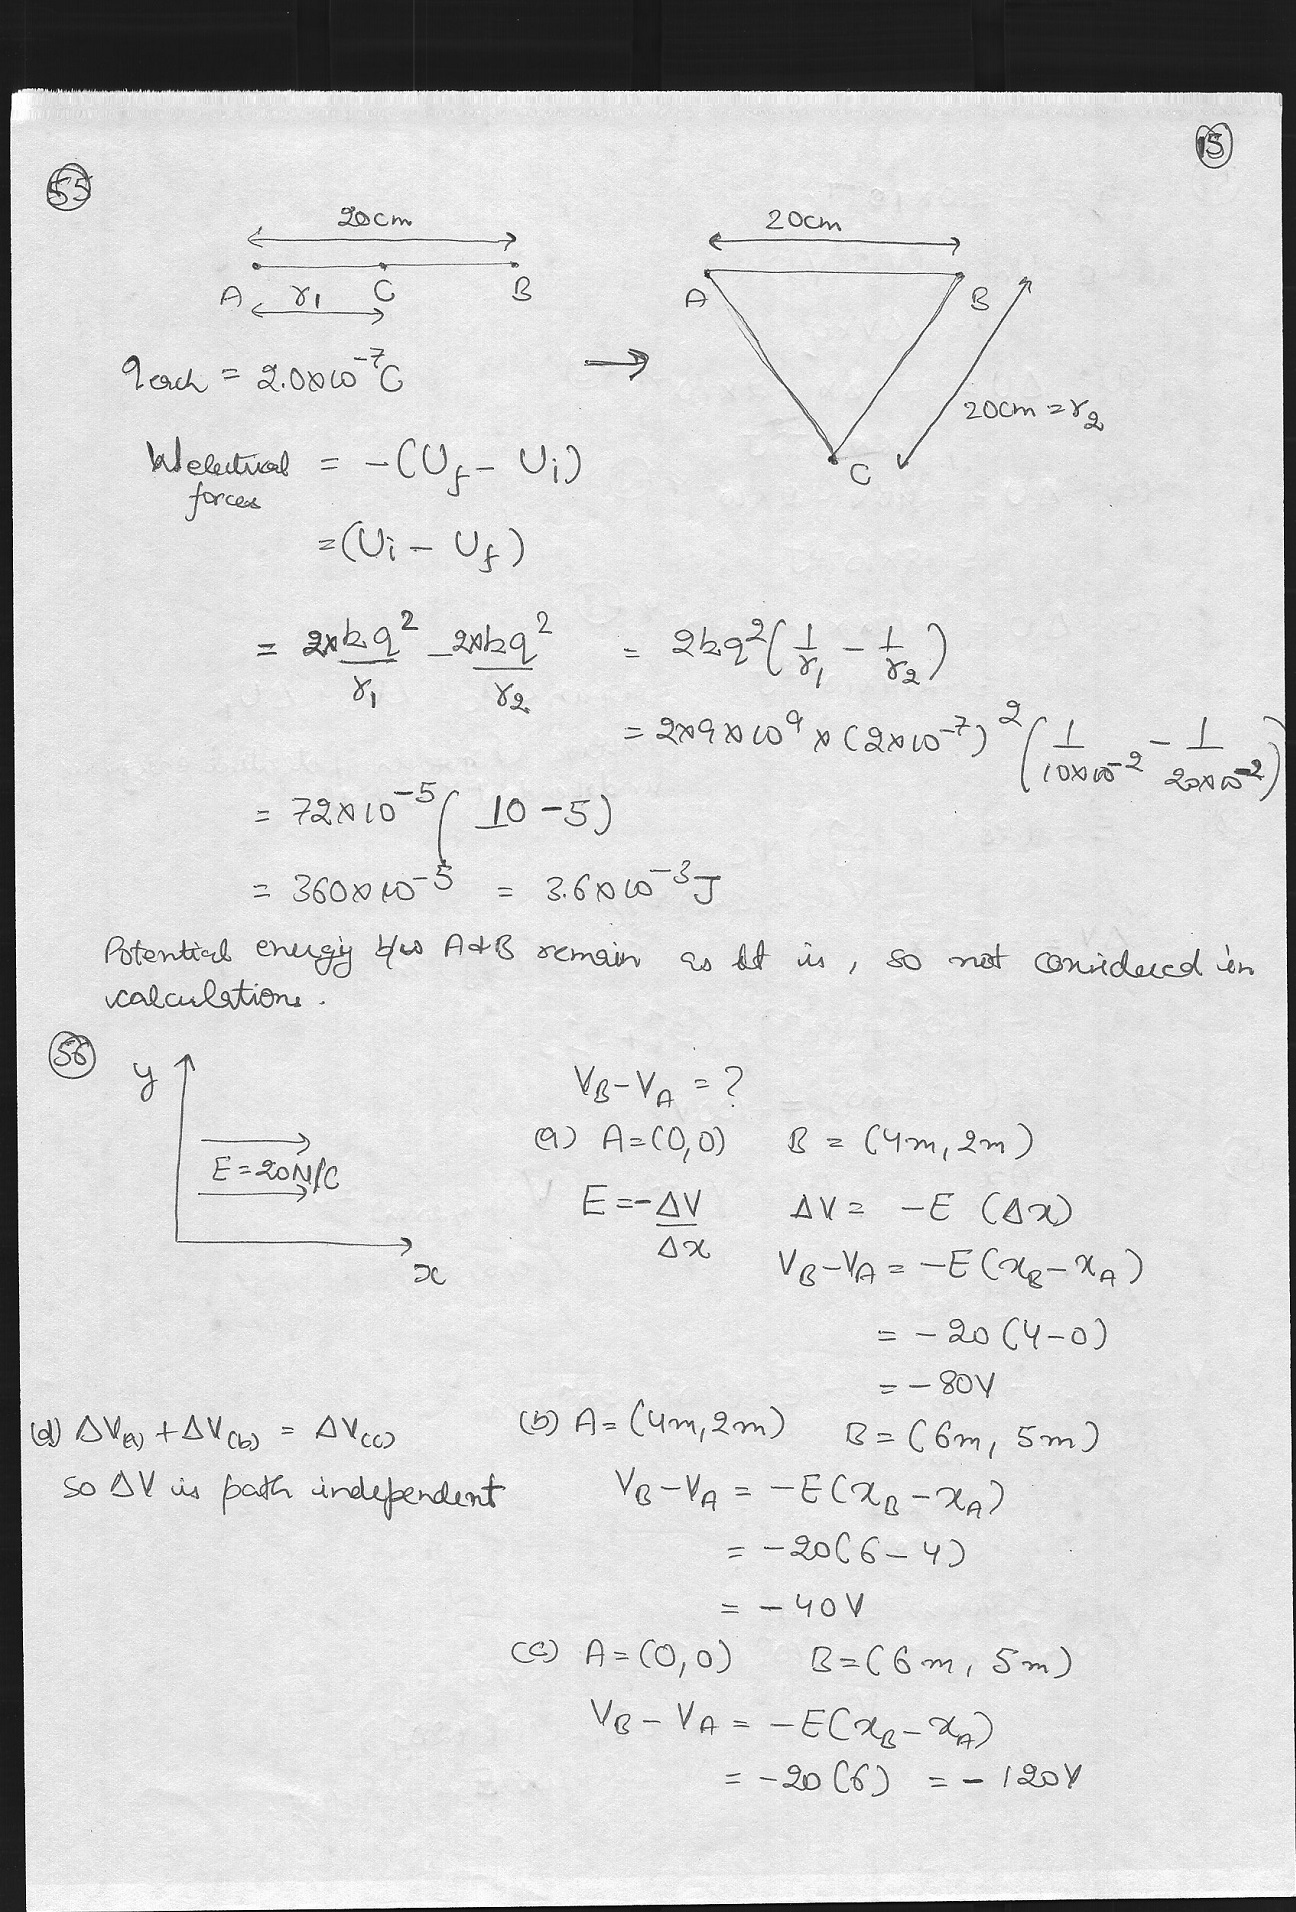 15
55
20cm
A r₁ C B
20cm
A B
20cm = r₂
C
q each = 2.0×10⁻⁷C
W electrical forces = -(U_f - U_i)
= (U_i - U_f)
= 2×kq²/r₁ - 2×kq²/r₂ = 2kq²(1/r₁ - 1/r₂)
= 2×9×10⁹ × (2×10⁻⁷)² (1/10×10⁻² - 1/20×10⁻²)
= 72×10⁻⁵( 10 - 5)
= 360×10⁻⁵ = 3.6×10⁻³J
Potential energy b/w A & B remain as it is, so not considered in
calculations.
56
y
E = 20N/C
x
V_B - V_A = ?
(a) A = (0,0) B = (4m, 2m)
E = -ΔV/Δx ΔV = -E (Δx)
V_B - V_A = -E(x_B - x_A)
= -20(4-0)
= -80V
(b) A = (4m, 2m) B = (6m, 5m)
V_B - V_A = -E(x_B - x_A)
= -20(6-4)
= -40V
(c) A = (0,0) B = (6m, 5m)
V_B - V_A = -E(x_B - x_A)
= -20(6) = -120V
(d) ΔV(a) + ΔV(b) = ΔV(c)
so ΔV is path independent